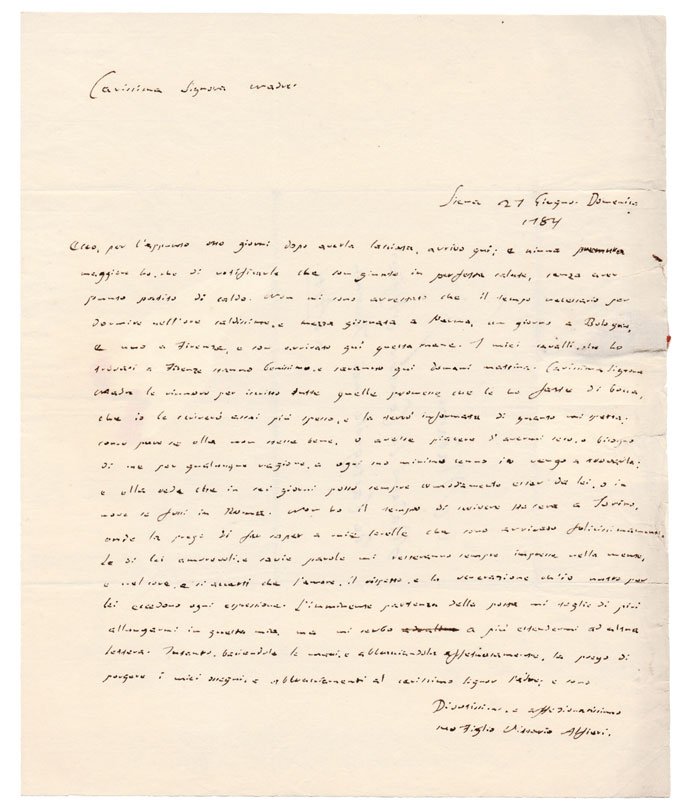 Carissima Signora Madre.
Siena 27 Giugno. Domenica
1784
Ecco, per l'appunto otto giorni dopo averla lasciata, arrivo qui; e niuna premura
maggiore ho, che di notificarle che son giunto in perfetta salute, senza aver
punto patito di caldo. Non mi sono arrestato che il tempo necessario per
dormire nell'ore caldissime, e mezza giornata a Parma, un giorno a Bologna,
e uno a Firenze, e son arrivato qui questa mane. I miei cavalli, che ho
trovati a Firenze stanno benissimo, e saranno qui domani mattina. Carissima Signora
Madre le rinnovo per iscritto tutte quelle promesse che le ho fatte di bocca,
che io le scriverò assai più spesso, e la terrò informata di quanto mi spetta:
come pure se ella non stesse bene, o avesse piacere d'avermi seco, o bisogno
di me per qualunque ragione, a ogni suo minimo cenno io vengo a trovarla:
e ella vede che in sei giorni posso sempre comodamente esser da lei, o in
nove se fossi in Roma. Non ho il tempo di scrivere stasera a Torino,
onde la prego di far saper a mia sorella che sono arrivato felicissimamente.
Le di lei amorevoli, e savie parole mi resteranno sempre impresse nella mente,
e nel core, e si accerti che l'amore, il rispetto, e la venerazione ch'io nutro per
lei eccedono ogni espressione. L'imminente partenza della posta mi toglie di più
allungarmi in questa mia, ma mi serbo a più estendermi ad altra
lettera. Intanto, baciandole le mani, e abbracciandola affettuosamente, la prego di
porgere i miei ossequi, e abbracciamenti al carissimo Signor Padre; e sono
Divotissimo, e affezionatissimo
suo Figlio Vittorio Alfieri.